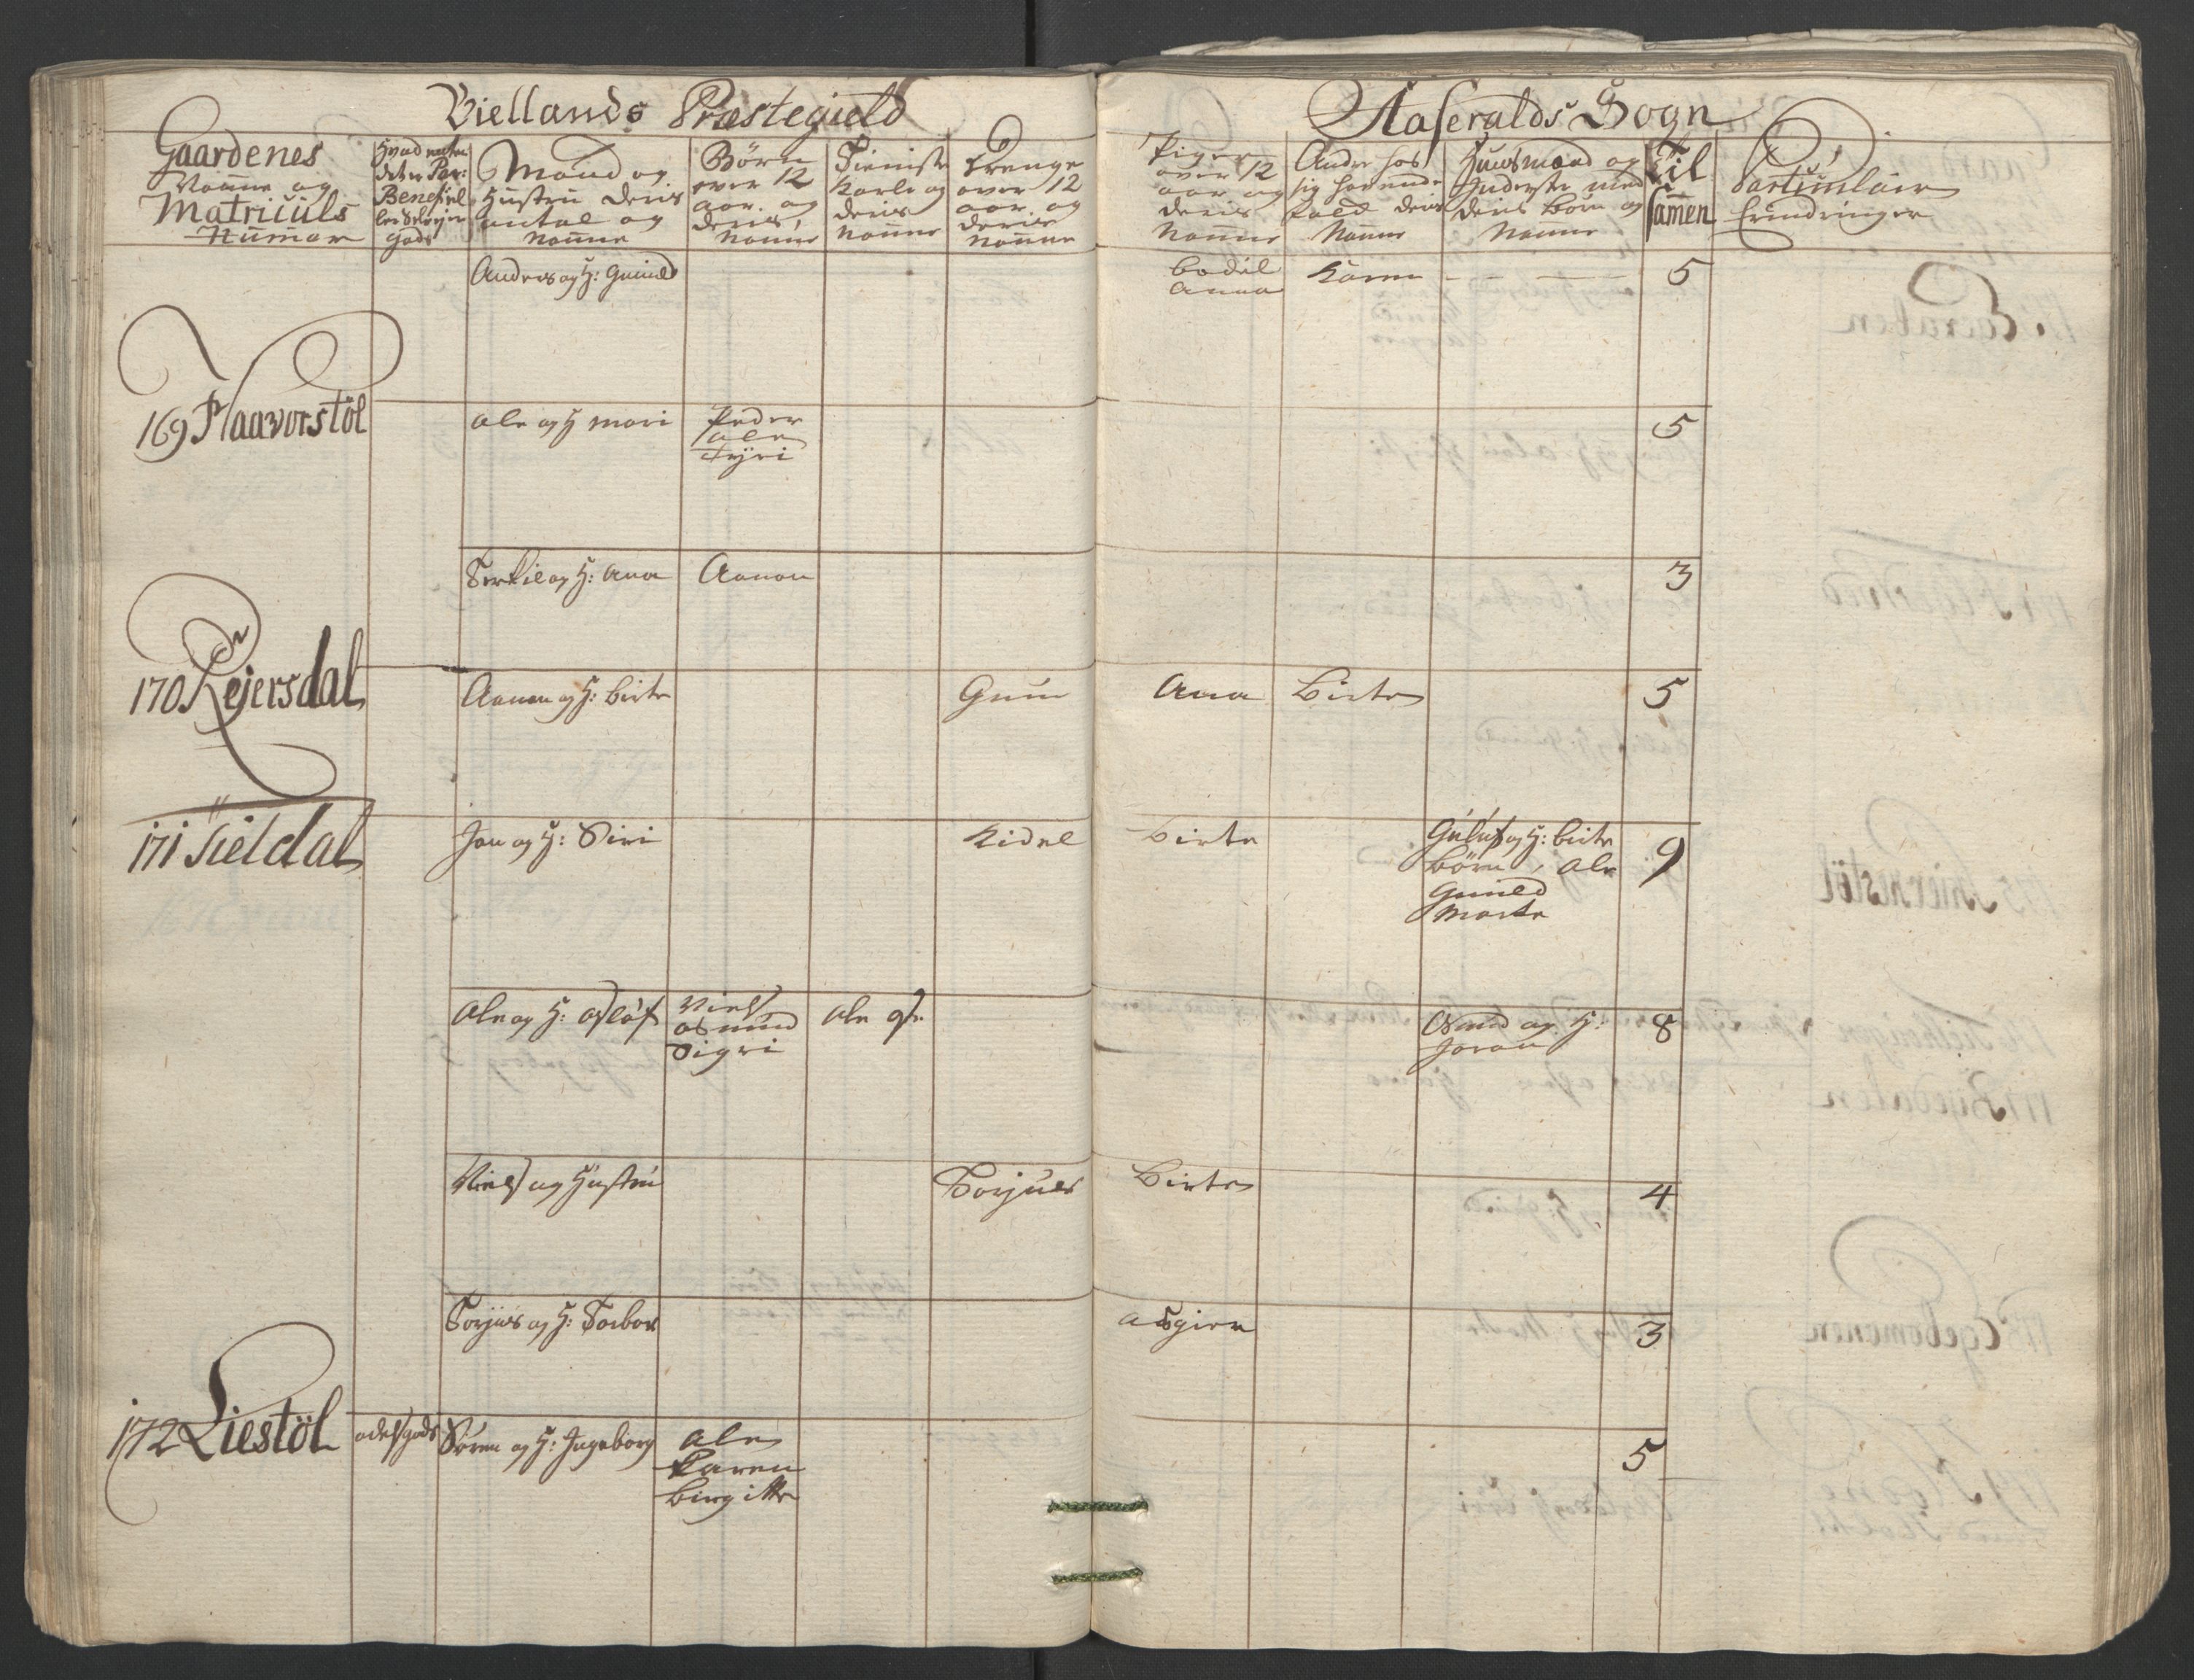 Viellands Præstegield
Aaseralds Sogn
Gaardenes
Naune og
Matriculs
Numer
Mand og
Hustru deris
antal og
Naune
Børn
over 12
aar. og
deris
Naune
Tieniste
Karle og
deris
Naune
Drenge
over 12
aar. og
deris
Naune
Piger
over 12
aar og
deris
Naune
Andre hos
sig havende
Naune
Huusmænd og
Inderste med
deris børn og
Naune
Til
samen
Particulair
Erindringer
Anders og H: Gunild
Bodil
Anna
Karen
5
169 Haavorstöl
Ole og H Mari
Peder
Ole
Tyri
5
Terkie og H: Ana
Aanon
3
170 Rejersdal
Aanon og H: Birte
Gun
Ana
Birte
5
171 Kieldal
Jon og H: Siri
Kidel
Birte
og H: Birte
Börn, Ole
Gunild
Marte
9
Ole og H: Asløf
Niels
Osmund
Sigri
Ole
Osmud og H:
Joran
8
Niels og Hustru
Torjues
Birte
4
Torjus og H: Torbor
Asgier
3
172 Liestöl
odelsgods
Søren og H: Ingeborg
Ole
Karen
Birgitte
5